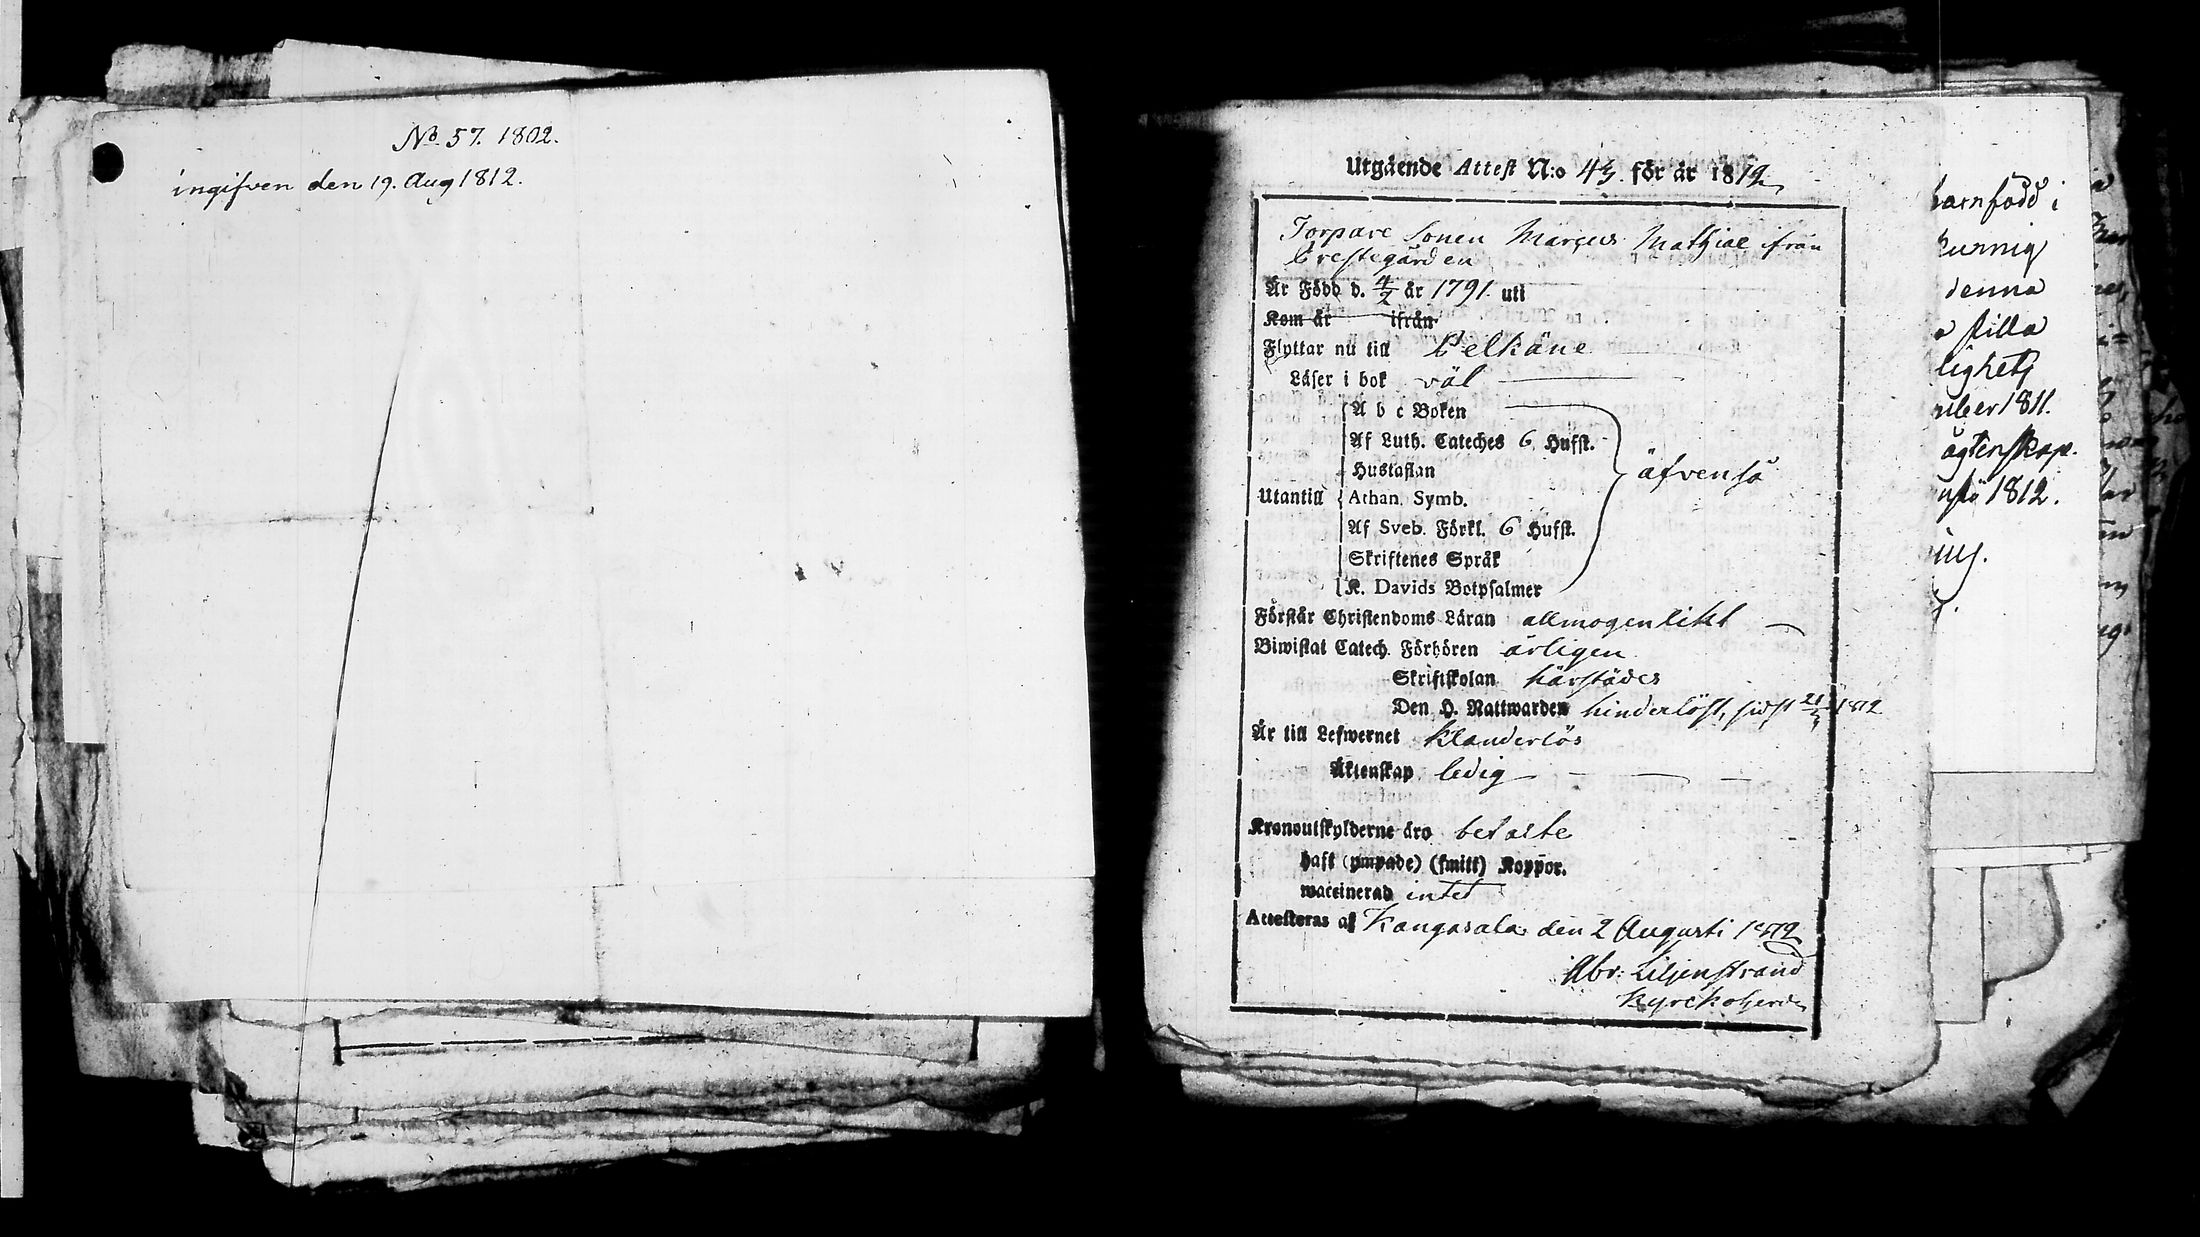 No. 57. 1802.
ingifven den 19. Aug 1812.
Utgående Attest N:o 43. för år 1812
Torpare Sonen Marcus Mathiæ ifrån
Prestegården
Är Född d. 4/2 år 1791. uti
Kom år ifrån
Flyttar nu till Pelkäne
Läser i bok väl
A b c Boken
Af Luth. Cateches 6 Hufst.
Hustaflan
äfvenså
Utantill Athan. Symb.
Af Sveb. Förkl. 6 Hufst.
Skriftenes Språk
K. Davids Botpsalmer
Förstår Christendoms Läran allmogenlikt
Biwistat Catech. Förhören årligen
Skriftskolan härstädes
Den H. Nattwarden hinderlöst, sidst 1812
Är till Lefwernet klanderlös
Äktenskap ledig
Kronoutskylderne äro betalte
haft (ympade) (smitt) Koppor.
waccinerad intet
Attesteras af Kangasala den 2 Augusti 1812
Abr: Liljenstrand
Kyrckoherde
barnfödd i
kunnig
denna
stilla
lighets
mber 1811.
ägtenskap.
1812.